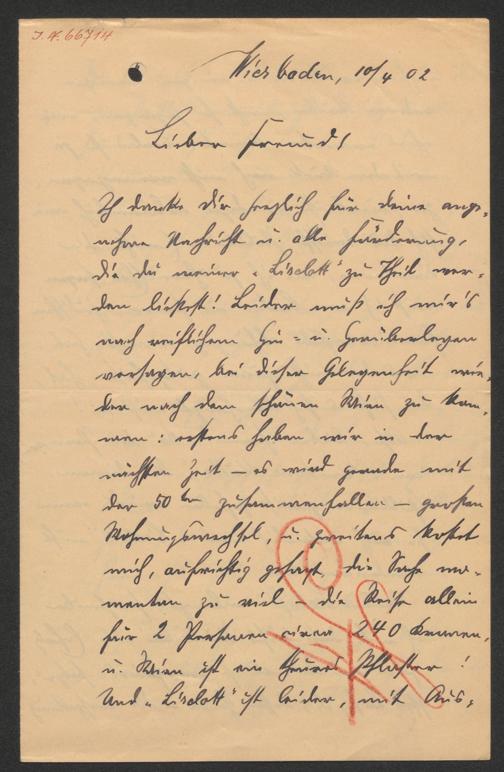 I. N. 66714
Wiesbaden, 10/4 02
Lieber Freund!
Ich danke Dir herzlich für deine ange-
nehme Nachricht u. alle Förderung,
die du meiner „Liselott“ zu Theil wer-
den ließest! Leider muß ich mir's
nach reiflichem Hin- u. Herüberlegen
versagen, bei dieser Gelegenheit wie-
der nach dem schönen Wien zu kom-
men: erstens haben wir in der
nächsten Zeit – es wird gerade mit
der 50ten zusammenfallen – großen
Wohnungswechsel, u. zweitens kostet
mich, aufrichtig gesagt, die Sache mo-
mentan zu viel – die Reise allein
für 2 Personen circa 240 Kronen,
u. Wien ist ein theures Pflaster!
Und „Liselott“ ist leider, mit Aus-